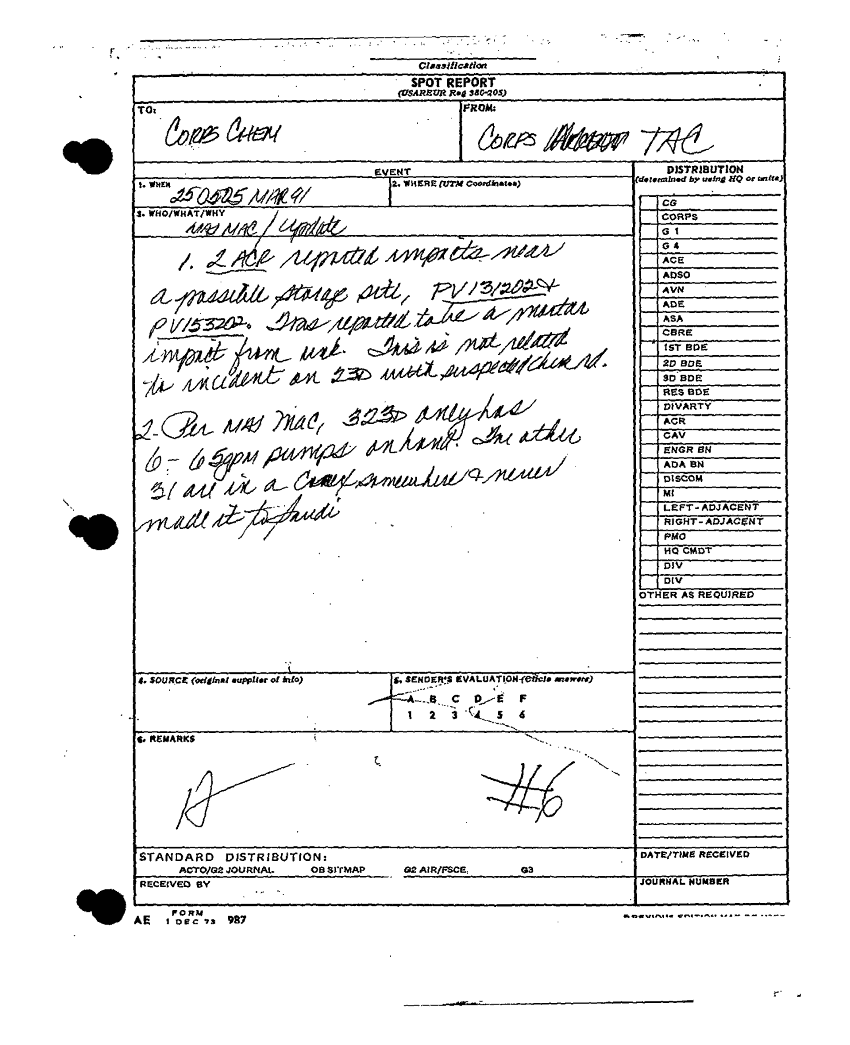 Classification
SPOT REPORT
(USAREUR Reg 380-205)
TO:
CORPS CHEM
FROM:
CORPS TAC
EVENT
1. WHEN
250505 MAR 91
2. WHERE (UTM Coordinates)
3. WHO/WHAT/WHY
MAJ MAC / Update
1. 2 ACR reported impacts near
a possible storage site, PV131202 &
PV153202. It was reported to be a mortar
impact from unk. This is not related
to incident on 23D with suspected chem rd.
2. Per MAJ Mac, 323D only has
6 - 65gpm pumps on hand. The other
31 are in a Conex somewhere & never
made it to Saudi
4. SOURCE (original supplier of info)
5. SENDER'S EVALUATION (Circle answers)
A B C D E F
1 2 3 4 5 6
6. REMARKS
#6
STANDARD DISTRIBUTION:
ACTO/G2 JOURNAL OB SITMAP G2 AIR/FSCE, G3
RECEIVED BY
DISTRIBUTION
(determined by using HQ or units)
CG
CORPS
G 1
G 4
ACE
ADSO
AVN
ADE
ASA
CBRE
1ST BDE
2D BDE
3D BDE
RES BDE
DIVARTY
ACR
CAV
ENGR BN
ADA BN
DISCOM
MI
LEFT-ADJACENT
RIGHT-ADJACENT
PMO
HQ CMDT
DIV
DIV
OTHER AS REQUIRED
DATE/TIME RECEIVED
JOURNAL NUMBER
AE FORM 1 DEC 73 987
PREVIOUS EDITION MAY BE USED